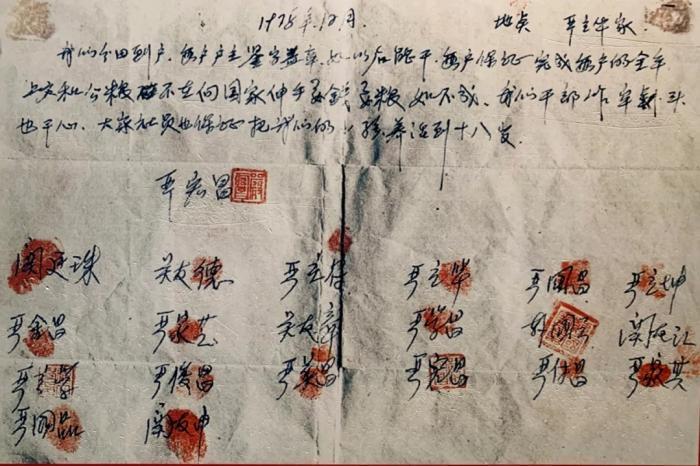 1978年12月. 地点 严立华家
我们分田到户,每户户主签字盖章,如以后能干,每户保证完成每户的全年
上交和公粮不在向国家伸手要钱要粮如不成,我们干部作牢刹头
也干心,大家社员也保证把我们的小孩养活到十八岁。
严宏昌
关廷珠 关友德 严立符 严立华 严国昌 严立坤
严金昌 严家芝 关友章 严学昌 韩国云 关友江
严立学 严俊昌 严美昌 严宏昌 严付昌 严家其
严国品 关友申